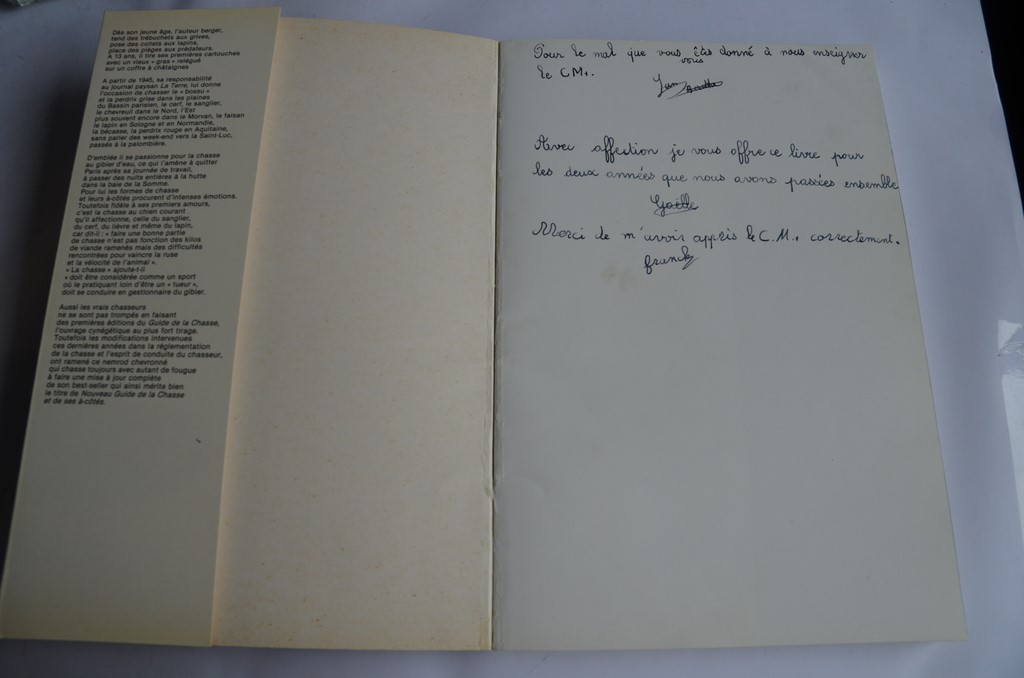 Dès son jeune âge, l'auteur berger,
tend des trébuchets aux grives,
pose des collets aux lapins,
place des pièges aux prédateurs.
A 13 ans, il tire ses premières cartouches
avec un vieux « gras » relégué
sur un coffre à châtaignes
A partir de 1945, sa responsabilité
au journal paysan La Terre, lui donne
l'occasion de chasser le « bossu »
et la perdrix grise dans les plaines
du Bassin parisien, le cerf, le sanglier,
le chevreuil dans le Nord, l'Est
plus souvent encore dans le Morvan, le faisan
le lapin en Sologne et en Normandie,
la bécasse, la perdrix rouge en Aquitaine,
sans parler des week-end vers la Saint-Luc,
passés à la palombière.
D'emblée il se passionne pour la chasse
au gibier d'eau, ce qui l'amène à quitter
Paris après sa journée de travail,
à passer des nuits entières à la hutte
dans la baie de la Somme.
Pour lui les formes de chasse
et leurs à-côtés procurent d'intenses émotions.
Toutefois fidèle à ses premiers amours,
c'est la chasse au chien courant
qu'il affectionne, celle du sanglier,
du cerf, du lièvre et même du lapin,
car dit-il : « faire une bonne partie
de chasse n'est pas fonction des kilos
de viande ramenés mais des difficultés
rencontrées pour vaincre la ruse
et la vélocité de l'animal ».
« La chasse » ajoute-t-il
« doit être considérée comme un sport
où le pratiquant loin d'être un « tueur »,
doit se conduire en gestionnaire du gibier.
Aussi les vrais chasseurs
ne se sont pas trompés en faisant
des premières éditions du Guide de la Chasse,
l'ouvrage cynégétique au plus fort tirage.
Toutefois les modifications intervenues
ces dernières années dans la réglementation
de la chasse et l'esprit de conduite du chasseur,
ont ramené ce nemrod chevronné
qui chasse toujours avec autant de fougue
à faire une mise à jour complète
de son best-seller qui ainsi mérite bien
le titre de Nouveau Guide de la Chasse
et de ses à-côtés.
Pour le mal que vous vous êtes donné à nous enseigner
le CM1.
Avec affection je vous offre ce livre pour
les deux années que nous avons passées ensemble
Gaëlle
Merci de m'avoir appris le C.M. correctement.
franck